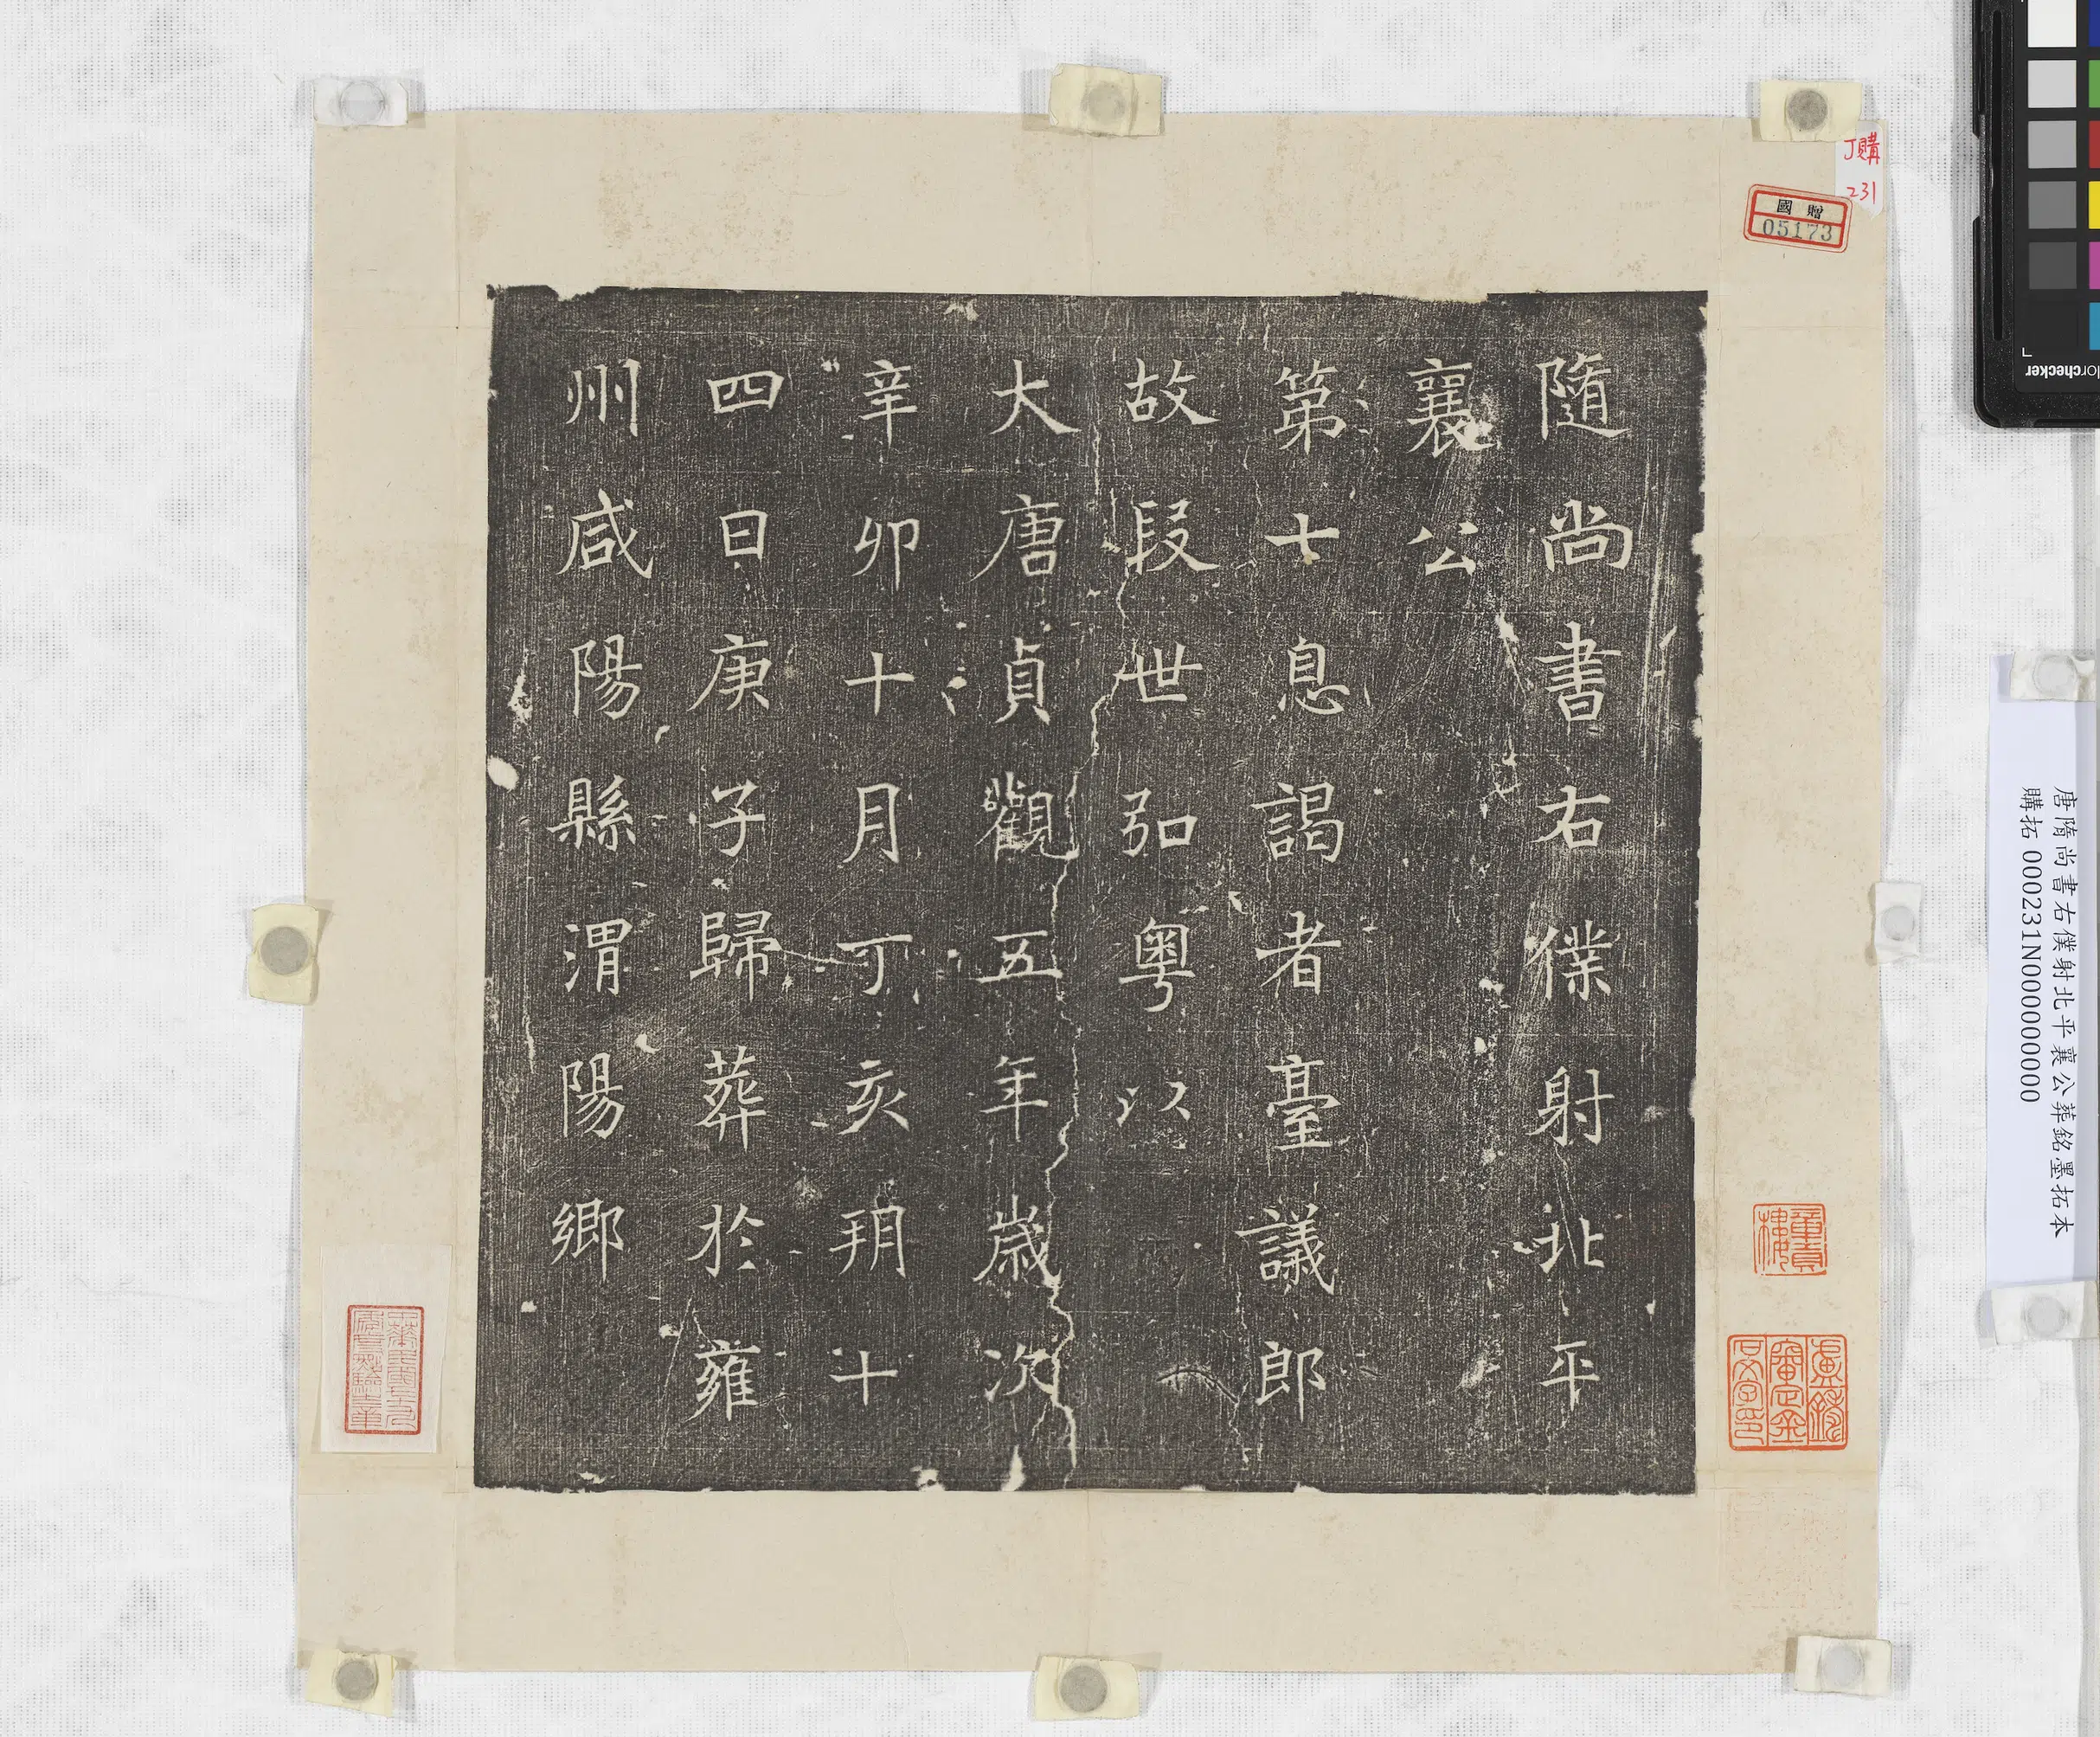 隨尚書右僕射北平
襄公
第七息謁者臺議郎
故段世弘粵以
大唐貞觀五年歲次
辛卯十月丁亥朔十
四日庚子歸葬於雍
州咸陽縣渭陽鄉
J購
231
國贈
05173
唐隋尚書右僕射北平襄公葬銘墨拓本
購拓 000231N000000000
colorchecker